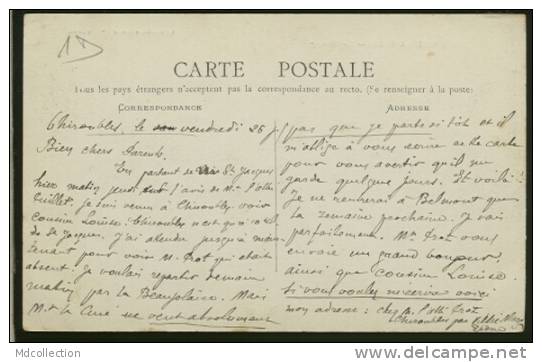 1D
CARTE POSTALE
Tous les pays étrangers n'acceptent pas la correspondance au recto. (Se renseigner à la poste)
CORRESPONDANCE
Chiroubles, le vendredi 26
Bien chers Parents.
En partant de St Jacques
hier matin jeudi sur l'avis de M. l'abbé
je suis venu à Chiroubles voir
cousine Louise. Chiroubles n'est qu'à
de St Jacques. J'ai attendu jusqu'à main-
tenant pour voir M. Trot qui était
absent. Je voulais repartir demain
matin par le Beaujolais. Mais
M. le Curé ne veut absolument
ADRESSE
pas que je parte si tôt et il
m'oblige à vous écrire cette carte
pour vous avertir qu'il me
garde quelques jours. Et voilà !
Je ne rentrerai à Belmont que
la semaine prochaine. Je vais
parfaitement. Mr Trot vous
envoie un grand bonjour
ainsi que Cousine Louise.
Si vous voulez m'écrire voici
mon adresse : chez M. l'abbé Trot
Chiroubles par Villié-Morgon
Rhône
Mcollection
delcampe.net